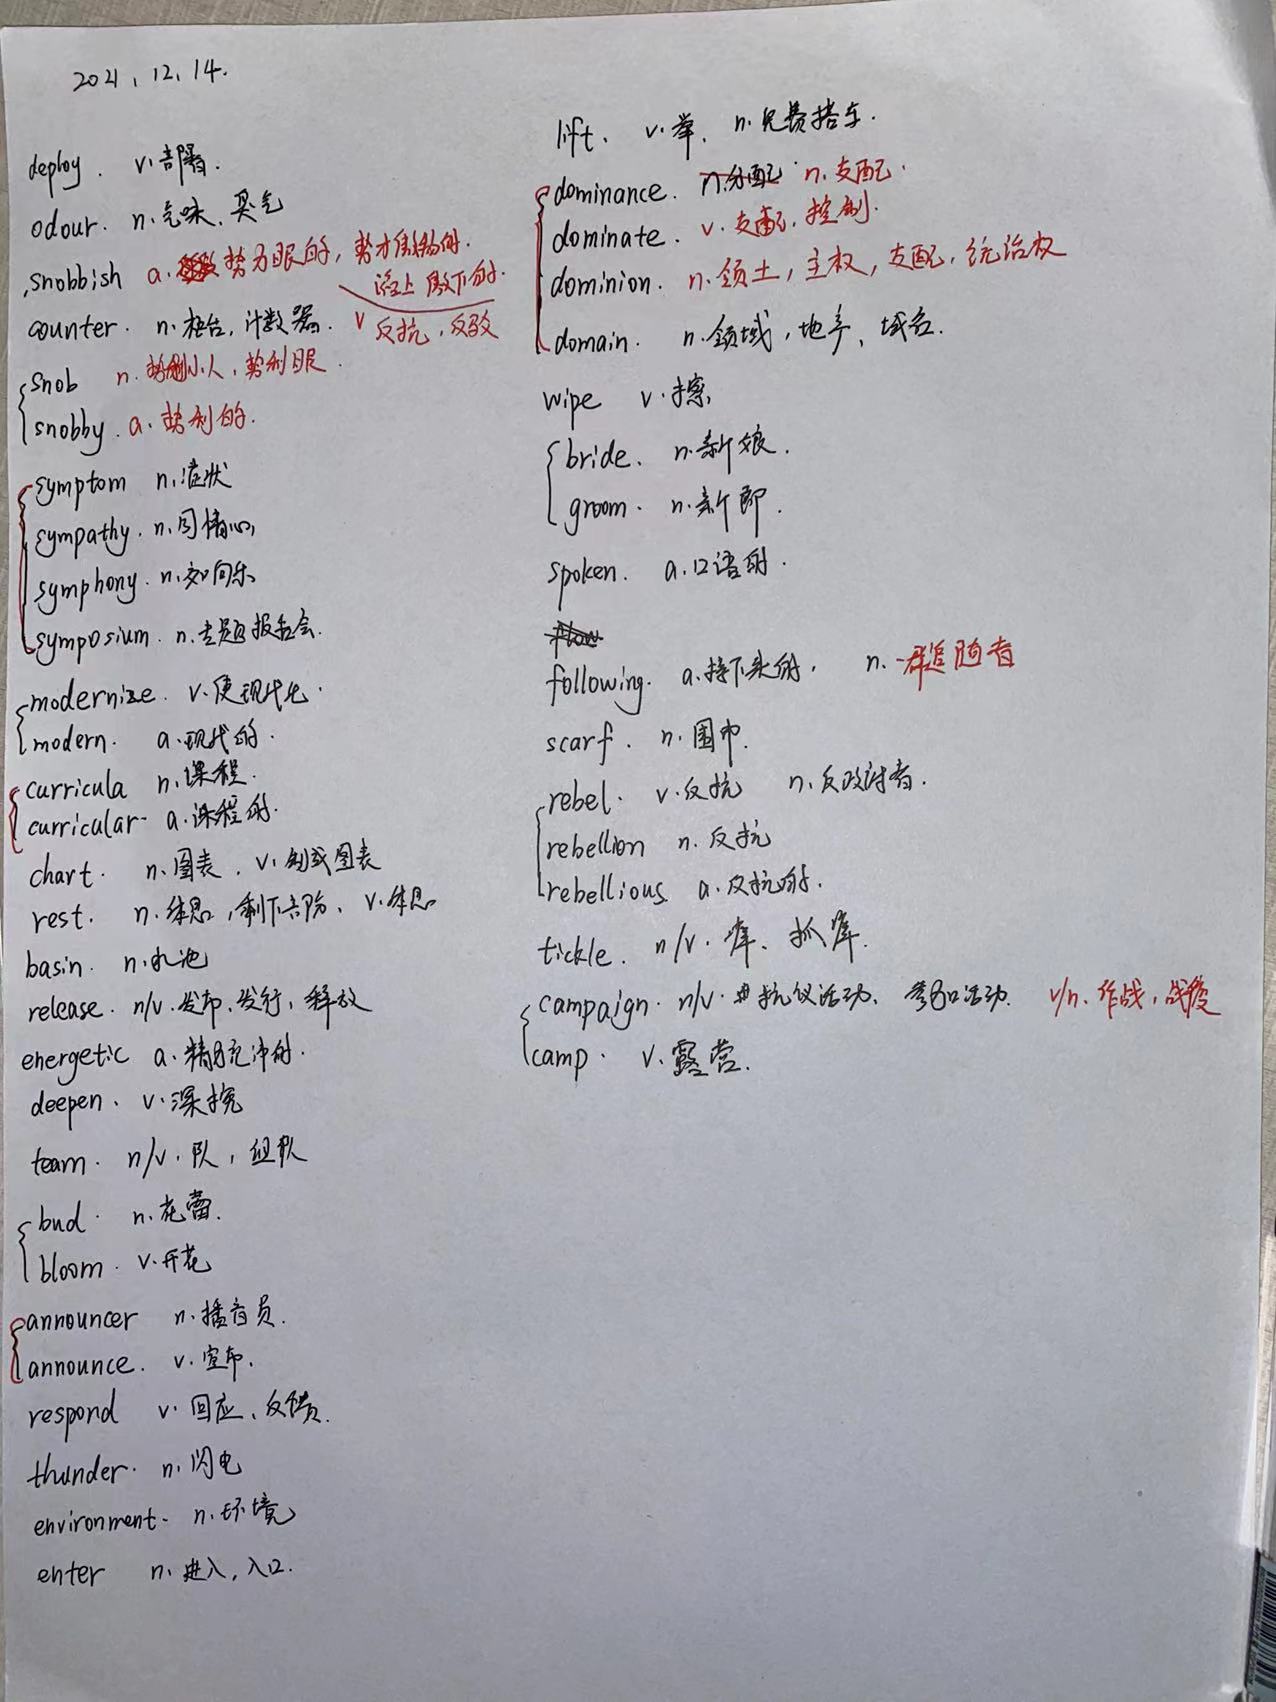 2021.12.14.
deploy. v.部署.
odour. n.气味、臭气
snobbish a. 势力眼的，势
谄上傲下的.
counter. n.柜台，计数器. v 反抗，反驳
snob n.势利小人，势利眼.
snobby. a.势利的.
symptom n.症状
sympathy. n.同情心
symphony. n.交响乐
symposium. n.专题报告会.
modernize. v.使现代化.
modern. a.现代的.
curricula n.课程.
curricular a.课程的.
chart. n.图表. v.制成图表
rest. n.休息，剩下部分、v.休息
basin. n.水池
release. n/v.发布、发行，释放
energetic a.精力充沛的.
deepen. v.深挖
team. n/v.队，组队
bud. n.花蕾.
bloom. v.开花
announcer n.播音员.
announce. v.宣布.
respond v.回应、反馈.
thunder. n.闪电
environment. n.环境
enter n.进入，入口.
lift. v.举. n.免费搭车.
dominance. n.分配 n.支配.
dominate. v.支配，控制.
dominion. n.领土，主权，支配，统治权
domain. n.领域，地产、域名.
wipe v.擦
bride. n.新娘.
groom. n.新郎.
spoken. a.口语的.
following. a.接下来的. n.一群追随者
scarf. n.围巾.
rebel. v.反抗 n.反政府者.
rebellion n.反抗
rebellious a.反抗的.
tickle. n/v.痒、抓痒.
campaign. n/v. 抗议活动、参加活动. v/n.作战，战役
camp. v.露营.